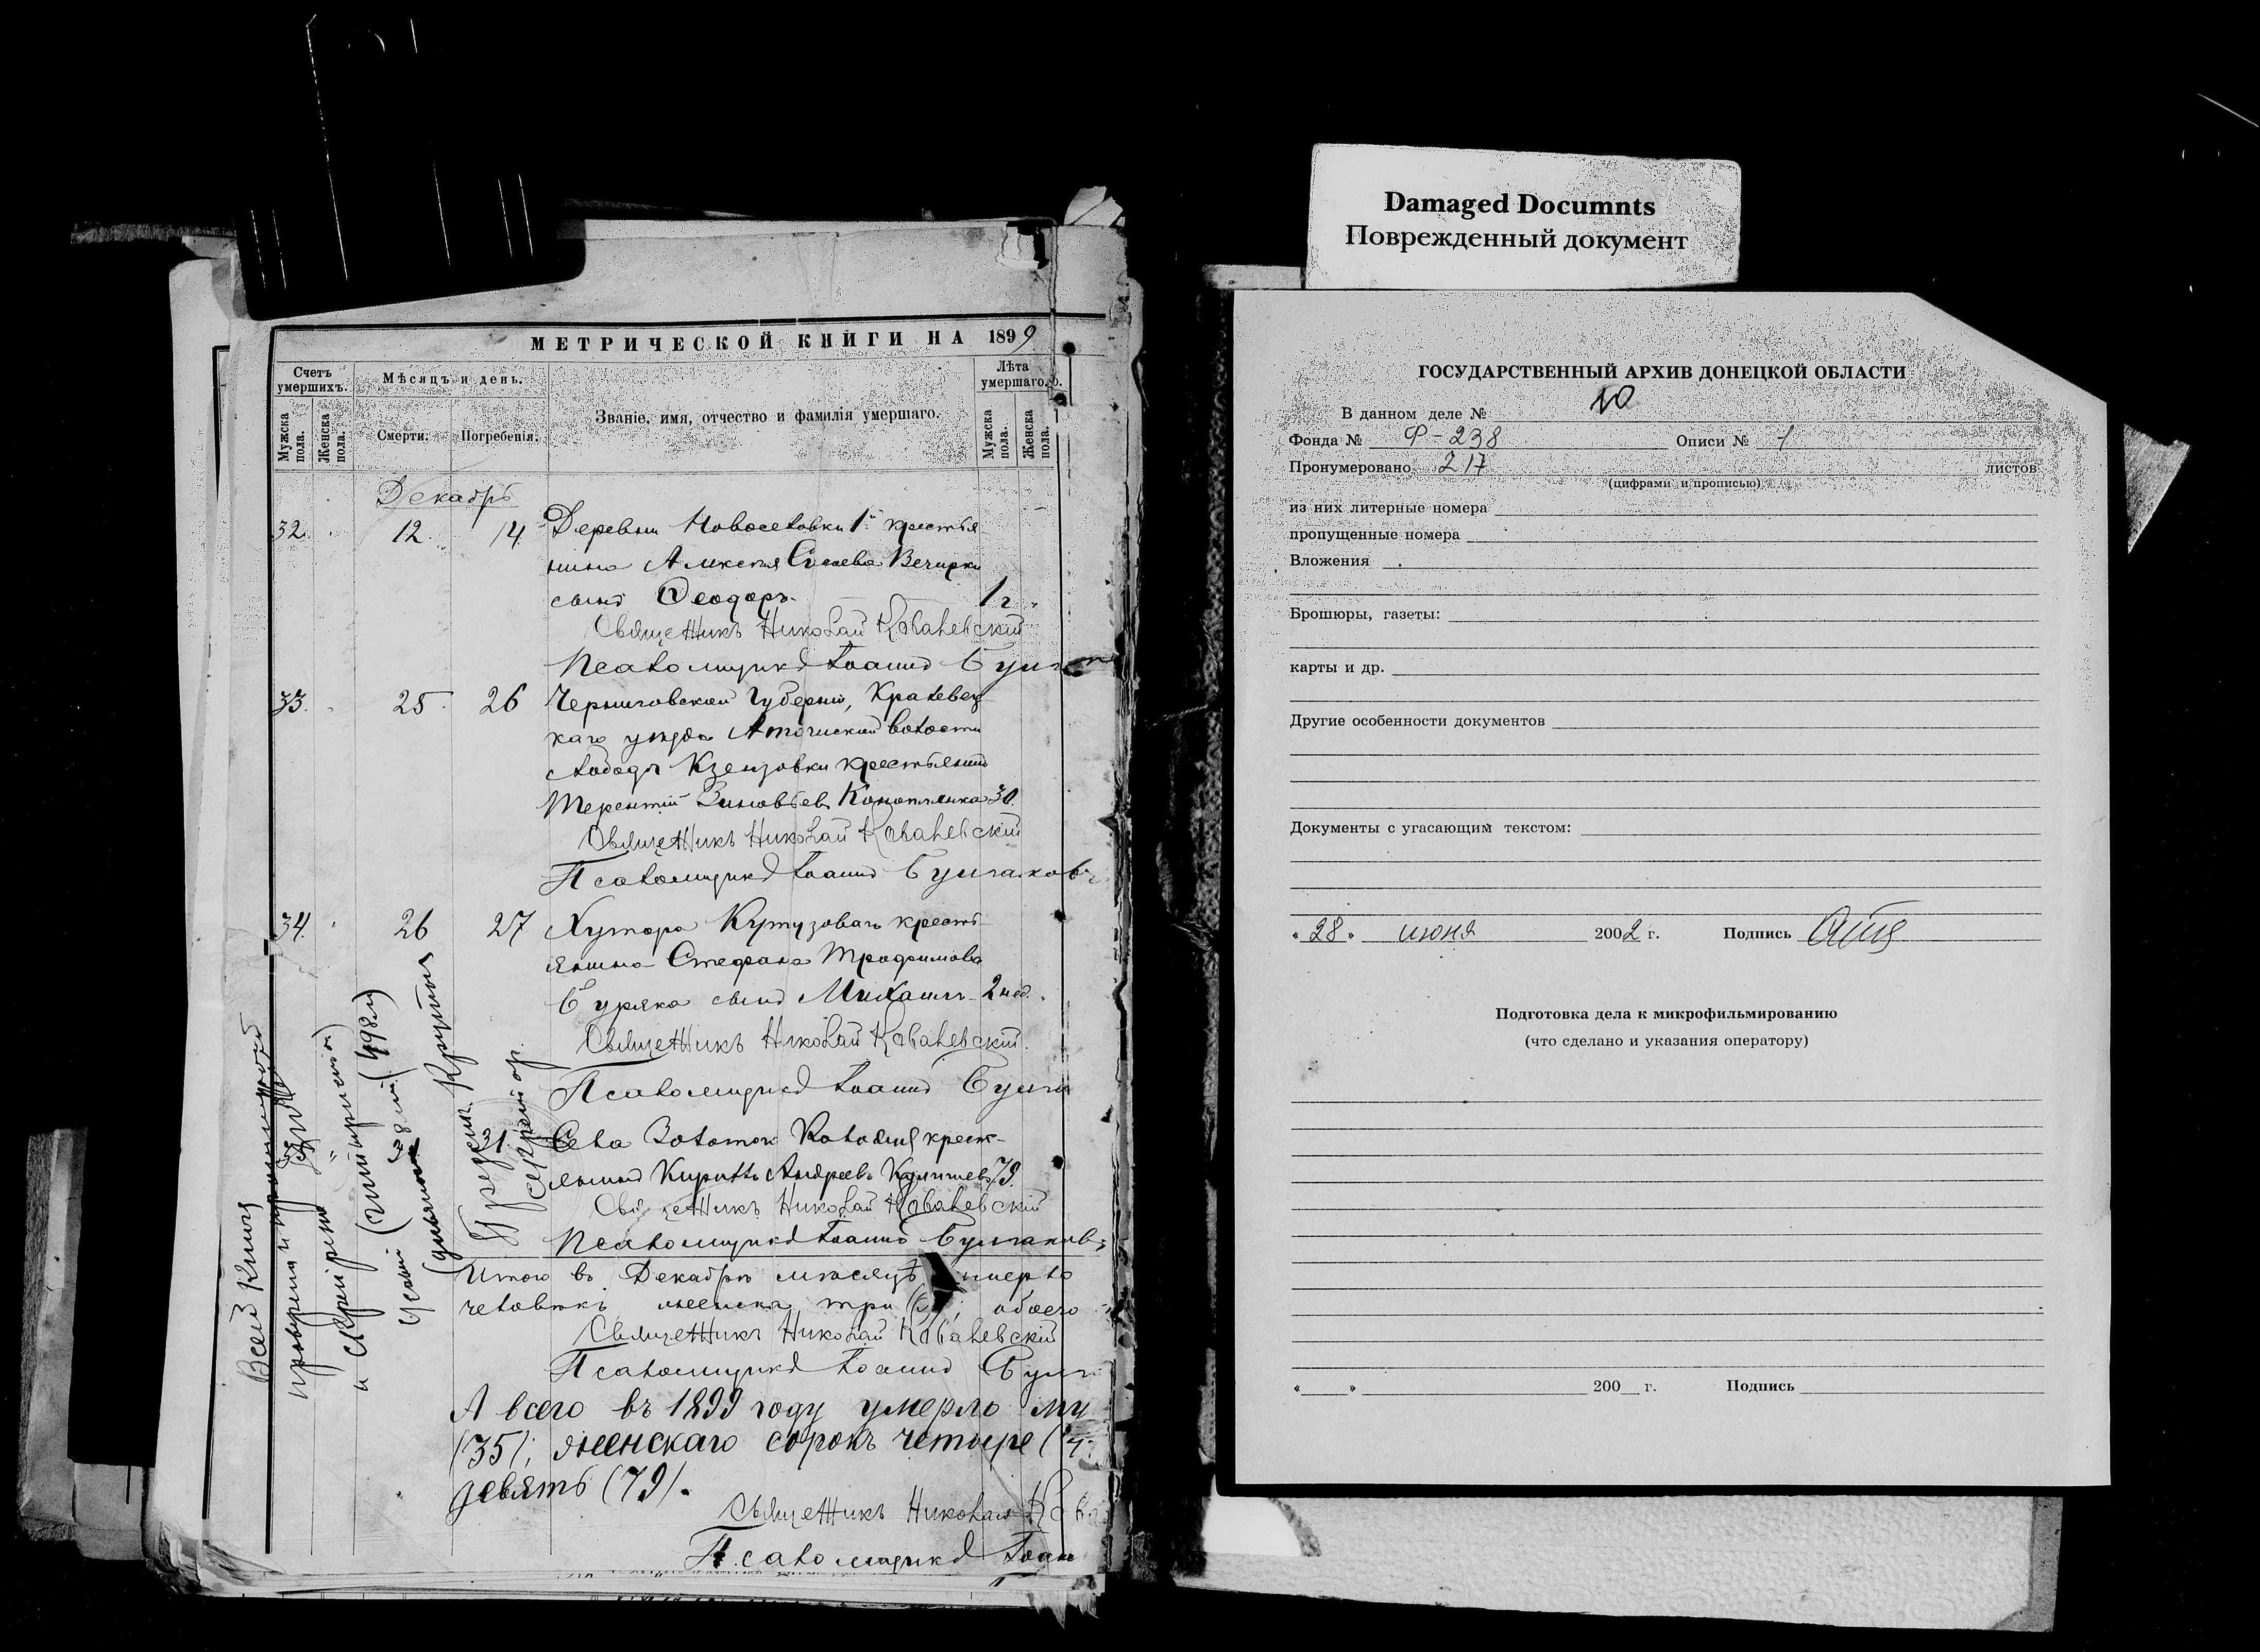 МЕТРИЧЕСКОЙ КНИГИ НА 1899
Счетъ умершихъ.
Мѣсяцъ и день.
Званіе, имя, отчество и фамилія умершаго.
Лѣта умершаго.
Мужска пола.
Женска пола.
Смерти.
Погребенія.
Мужска пола.
Женска пола.
Декабрь
32. 12. 14. Деревни Новоселовки 1й крестья
нина Алексѣя Вечирки
сынъ Ѳеодоръ. 1 г.
Священникъ Николай Ковалевскій
Псаломщикъ Іоаннъ
33. 25. 26 Черниговской губерніи, Кралевец
каго уѣзда волости
слободы крестьянинъ
Терентій Зиновьевъ Коноплянка 30.
Священникъ Николай Ковалевскій
Псаломщикъ Іоаннъ Булгаковъ
34. 26 27 Хутора Кутузоваго кресть
янина Стефана Трофимова
Буряка сынъ Михаилъ 2 нед.
Священникъ Николай Ковалевскій.
Псаломщикъ Іоаннъ Булга
31. Села Золотой Колодязь крест-
янинъ Кириллъ Андреевъ 79.
Священникъ Николай Ковалевскій
Псаломщикъ Іоаннъ Булгаковъ
Итого въ Декабрѣ мѣсяцѣ умерло
человѣкъ три обоего
Священникъ Николай Ковалевскій
Псаломщикъ Іоаннъ Булг
А всего въ 1899 году умерло му
(35); женскаго сорокъ четыре (4
девять (79).
Священникъ Николай Кова
Псаломщикъ Іоан
Всей Книги
и скрѣплено
Секретарь
Damaged Documnts
Поврежденный документ
ГОСУДАРСТВЕННЫЙ АРХИВ ДОНЕЦКОЙ ОБЛАСТИ
В данном деле № 10
Фонда № Ф-238 Описи № 1
Пронумеровано 217 листов
(цифрами и прописью)
из них литерные номера
пропущенные номера
Вложения
Брошюры, газеты:
карты и др.
Другие особенности документов
Документы с угасающим текстом:
« 28 » июня 2002 г. Подпись
Подготовка дела к микрофильмированию
(что сделано и указания оператору)
« » 200 г. Подпись